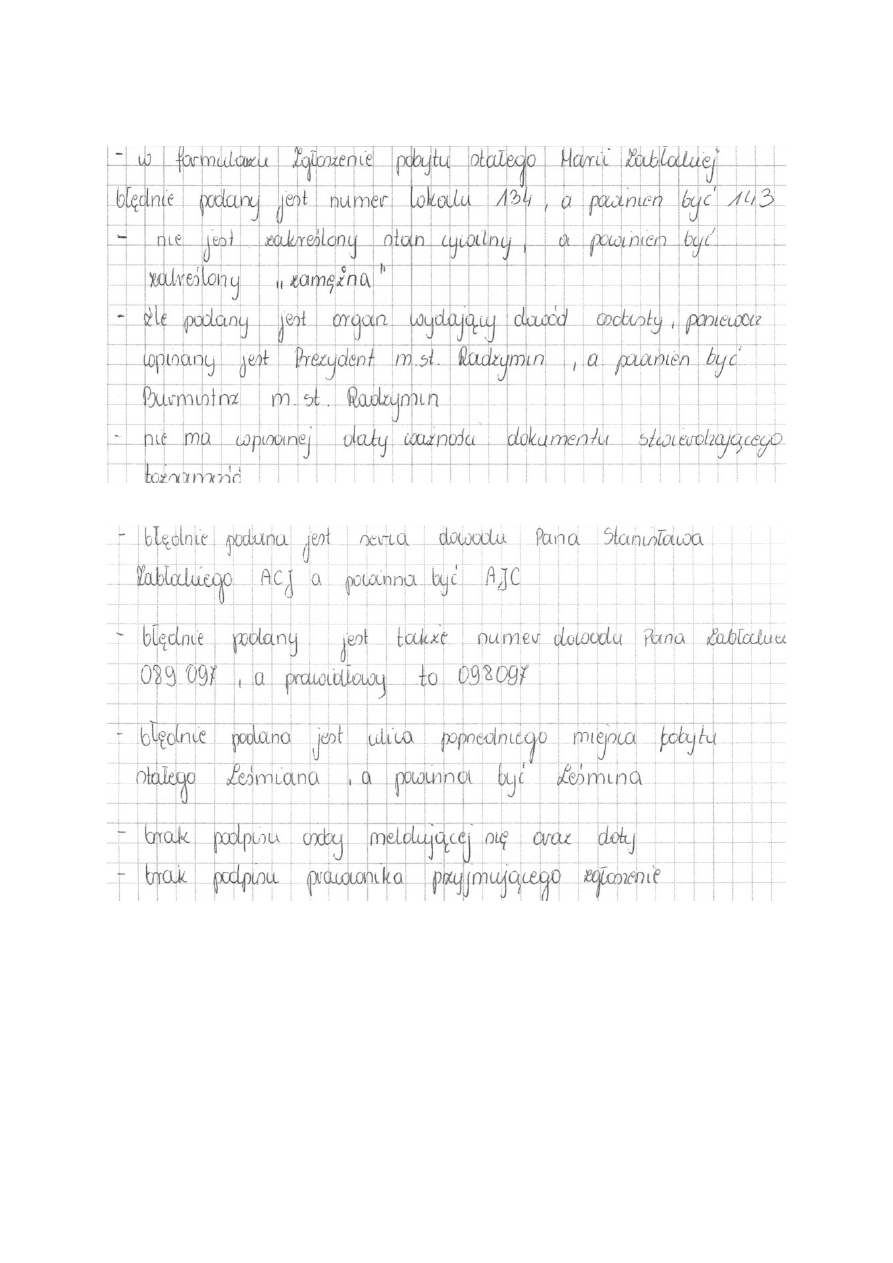 - w formularzu Zgłoszenie pobytu stałego Marii Zabłockiej
błędnie podany jest numer lokalu 134, a powinien być 143
- nie jest zakreślony stan cywilny, a powinien być
zakreślony „zamężna"
- źle podany jest organ wydający dowód osobisty, ponieważ
wpisany jest Prezydent m.st. Radzymin, a powinien być
Burmistrz m.st. Radzymin
- nie ma wpisanej daty ważności dokumentu stwierdzającego
tożsamość
- błędnie podana jest seria dowodu Pana Stanisława
Zabłockiego ACJ a powinna być AJC
- błędnie podany jest także numer dowodu Pana
089 097, a prawidłowy to 098097
- błędnie podana jest ulica poprzedniego miejsca pobytu
stałego Leśmiana, a powinna być Leśmina
- brak podpisu osoby meldującej się oraz daty
- brak podpisu pracownika przyjmującego zgłoszenie